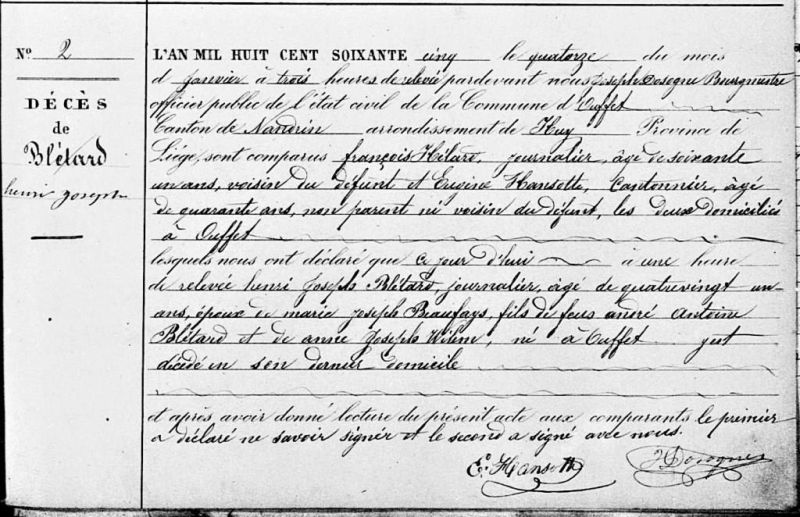 No 2
DÉCÈS
de
Blétard
henri joseph
L'AN MIL HUIT CENT SOIXANTE cinq le quatorze du mois
d janvier à trois heures de relevée pardevant nous Joseph Dosogne Bourgmestre
officier public de l'état civil de la Commune d'Ouffet
Canton de Nandrin arrondissement de Huy Province de
Liége, sont comparus françois Hilard, journalier, âgé de soixante
un ans, voisin du défunt et Eugène Hansotte, Cantonnier, âgé
de quarante ans, non parent ni voisin du défunt, les deux domiciliés
à Ouffet
lesquels nous ont déclaré que ce jour d'hui à une heure
de relevée henri Joseph Blétard, journalier, âgé de quatrevingt un
ans, époux de marie joseph Beaufays, fils de feus andré Antoine
Blétard et de anne Joseph Wilem, né à Ouffet yest
décédé en son dernier domicile
et après avoir donné lecture du présent acte aux comparants le premier
a déclaré ne savoir signer et le second a signé avec nous.
E. Hansotte
J Dosogne